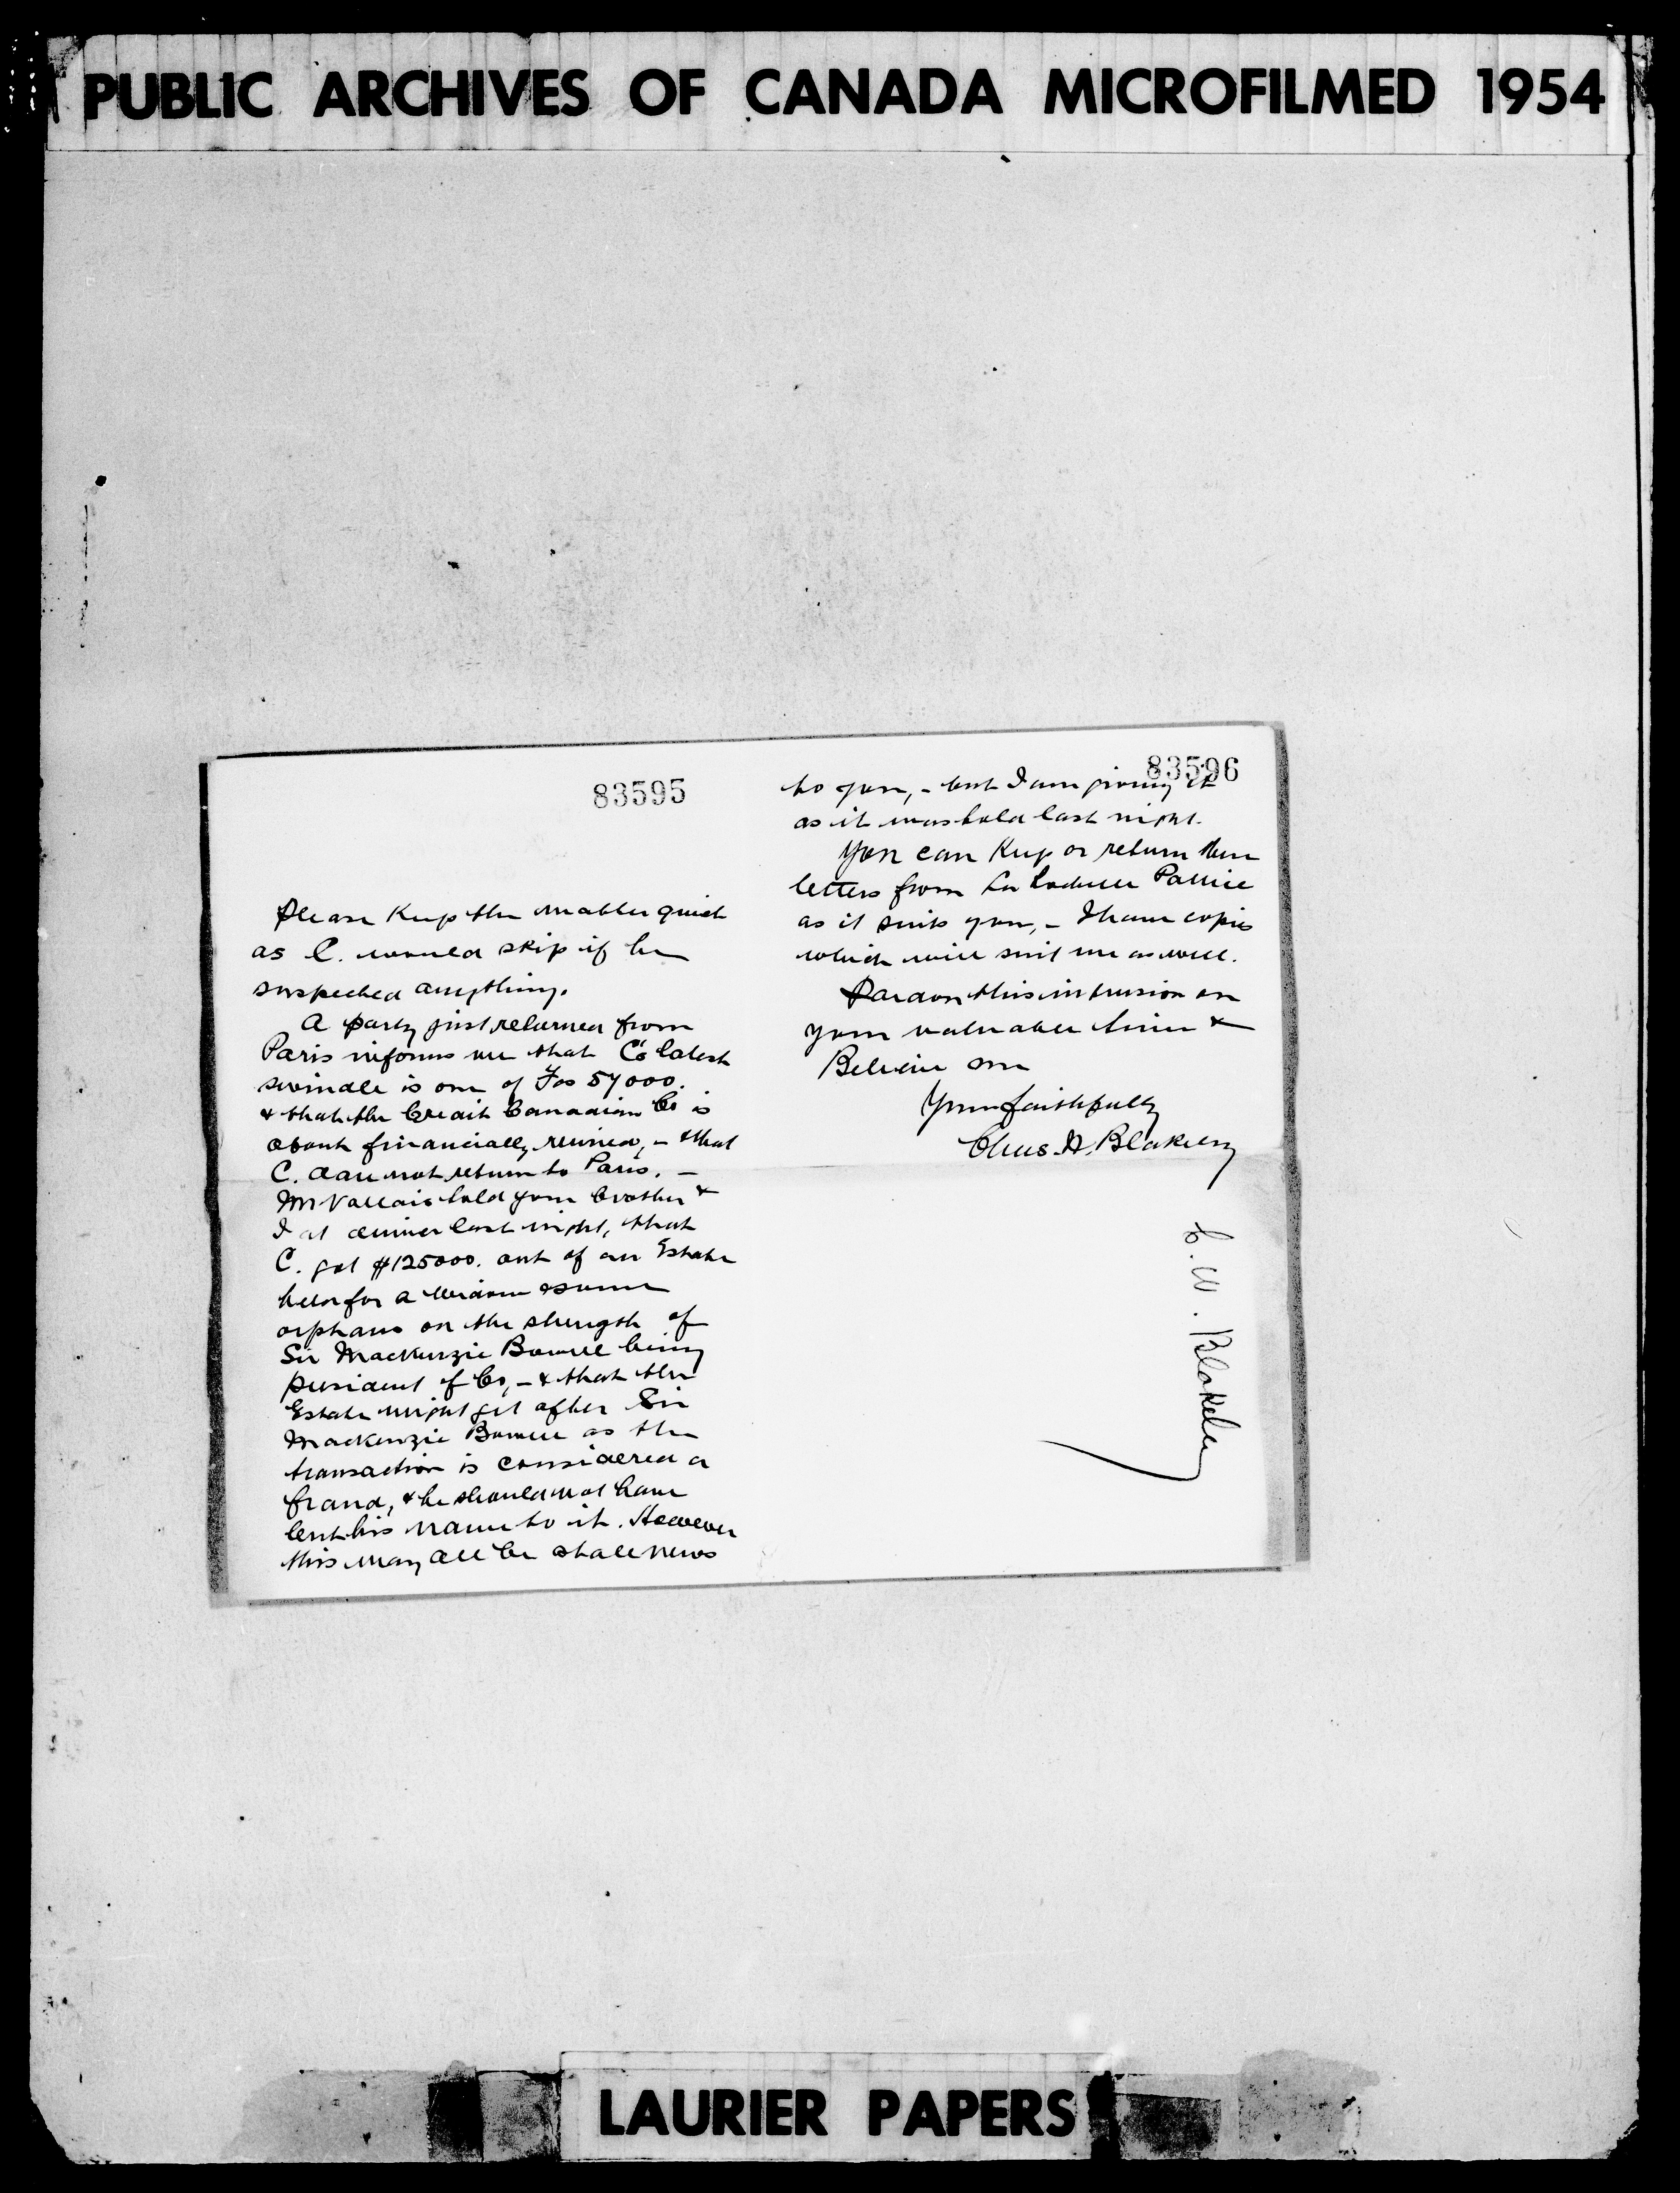 PUBLIC ARCHIVES OF CANADA MICROFILMED 1954
83595
Please Keep the matter quiet
as C. would skip if he
suspected anything.
A party just returned from
Paris informs me that C's latest
swindle is one of Fcs 57000.
& that the Credit Canadien Co is
about financially ruined, - & that
C. dare not return to Paris. -
Mr Vallais told your brother &
I at dinner last night, that
C. got $125000. out of an Estate
held for a widow & some
orphans on the strength of
Sir Mackenzie Bowell being
president of Co, - & that the
Estate might get after Sir
Mackenzie Bowell as the
transaction is considered a
fraud, & he should not have
lent his name to it. However
this may all be stale news
83596
to you, - but I am giving it
as it was told last night.
You can Keep or return these
letters from
as it suits you, - I have copies
which will suit me as well.
Pardon this intrusion on
your valuable time &
Believe me
Yours faithfully
Chas. A. Blakeley
C. A. Blakeley
LAURIER PAPERS